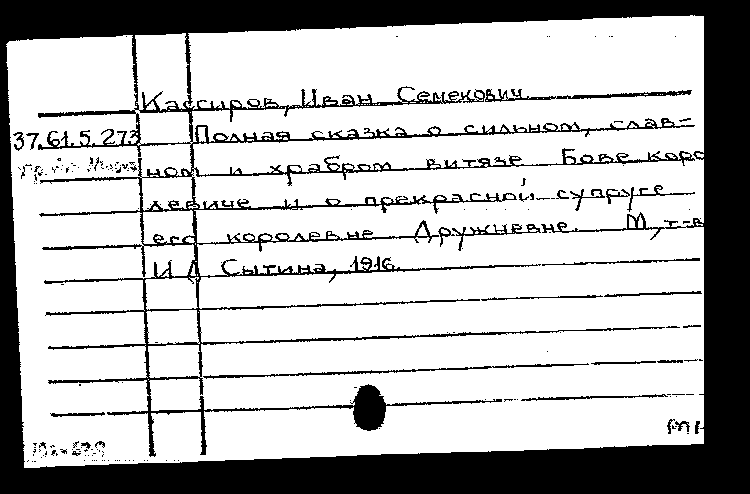 Кассиров, Иван Семенович
37.61.5.273 Полная сказка о сильном, слав-
ном и храбром витязе Бове коро
левиче и о прекрасной супруге
его королевне Дружневне. М, т-в
И Д Сытина, 1916.